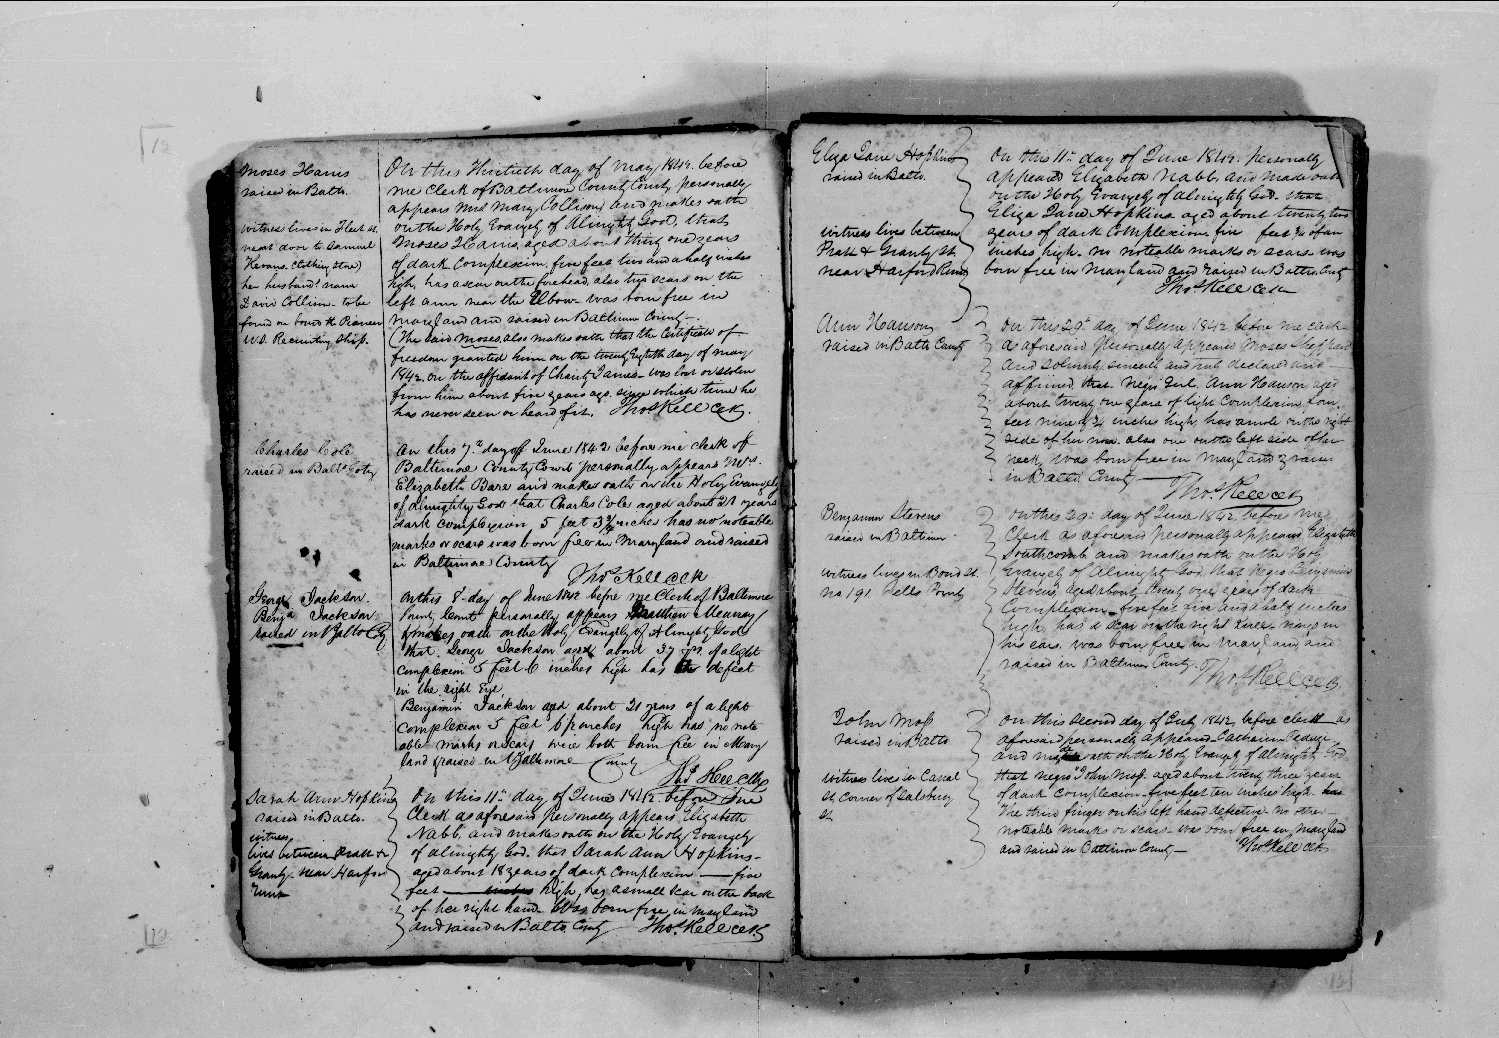 Moses Harris
raised in Balto.
witness lives in Fleet st.
next door to Samuel
Kevans. clothing store)
her husband's name
David Collison. to be
found on board the Pioneer
U.S. Recruiting Ship.
On this thirtieth day of May 1842. before
me clerk of Baltimore County Court, personally
appears Mrs Mary Collison, and makes oath
on the Holy Evangely of Almighty God, that
Moses Harris, aged about thirty one years
of dark Complexion, five feet two and a half inches
high, has a scar on the forehead, also two scars on the
left arm near the Elbow- was born free in
Maryland and raised in Baltimore County-.
(The said Moses, also makes oath that the Certificate of
freedom granted him on the twenty Eighth day of May
1842. on the affidavit of Charity James- was lost or stolen
from him about five years ago. since which time he
has never seen or heard of it. Thos Kell Clk.
Charles Cole
raised in Balto Coty
On this 7.th day of June 1842 before me clerk of
Baltimore County Court personally appears Mrs.
Elizabeth Bare and makes oath on the Holy Evangely
of almighty God that Charles Cole aged about 21 years
dark complexion, 5 feet 3 3/4 inches has no noteable
marks or scars was born free in Maryland and raised
in Baltimore County
Thos Kell Clk
George Jackson.
Benja Jackson.
raised in Balto Coty
On this 8. day of June 1842 before me Clerk of Baltimore
County Court personally appears Matthew Murray
& makes oath on the Holy Evangely of Almighty God
that George Jackson aged about 37 yrs of a light
complexion 5 feet 6 inches high has defect
in the right Eye,
Benjamin Jackson aged about 21 years of a light
complexion 5 feet 6 1/2 inches high has no note
able marks or scars were both born free in Mary
land & raised in Baltimore County
Thos Kell Clk
Sarah Ann Hopkins
raised in Balto.
witness
lives between Pratt &
Granby near Harford
Run
On this 11th day of June 1842. before me
Clerk as aforesaid personally appears Elizabeth
Nabb, and makes oath on the Holy Evangely
of almighty God. that Sarah Ann Hopkins-
aged about 18 years of dark complexion — five
feet — high, has a small scar on the back
of her right hand. Was born free in Maryland
and raised in Balto. County Thos Kell Clk
Eliza Jane Hopkins
raised in Balto.
witness lives between
Pratt & Granby St.
near Harford Run
On this 11th day of June 1842. personally
appeared Elizabeth Nabb, and made oath
on the Holy Evangely of Almighty God. that
Eliza Jane Hopkins aged about twenty two
years of dark Complexion, five feet 3/4 of an
inches high. no noteable marks or scars was
born free in Maryland and raised in Balto. County
Thos Kell Clk
Ann Hanson
raised in Balto County
On this 29th day of June 1842 before me Clerk
as aforesaid personally appeared Moses Sheppard
and solemnly sincerely and truly declared and
affirmed that Negro Girl Ann Hanson, aged
about twenty one years of light Complexion, four
feet nine & 3/4 inches high, has a mole on the right
side of her nose. also one on the left side of her
neck, was born free in Maryland & raised
in Balto. County —
Thos Kell Clk
Benjamin Stevens
raised in Baltimore
witness lives in Bond St.
No 191 Fells Point
On this 29th day of June 1842, before me
Clerk as aforesaid personally appeared Elizabeth
Southcomb and makes oath on the Holy
Evangely of Almighty God, that Negro Benjamin
Stevens, aged about twenty one years of dark
Complexion five feet five and a half inches
high, has a scar on the right Knee. rings in
his ears. was born free in Maryland and
raised in Baltimore County. Thos Kell Clk.
John Moss
raised in Balto
witness lives in Canal
St. Corner of Salsbury
St
On this second day of July 1842, before clerk as
aforesaid personally appeared Catharine
and oath on the Holy Evangely of Almighty God
that negro John Moss. aged about twenty three years
of dark Complexion five feet ten inches high. has
The third finger on his left hand defective. no other
noteable marks or scars- was born free in Maryland
and raised in Baltimore County— Thos Kell Clk